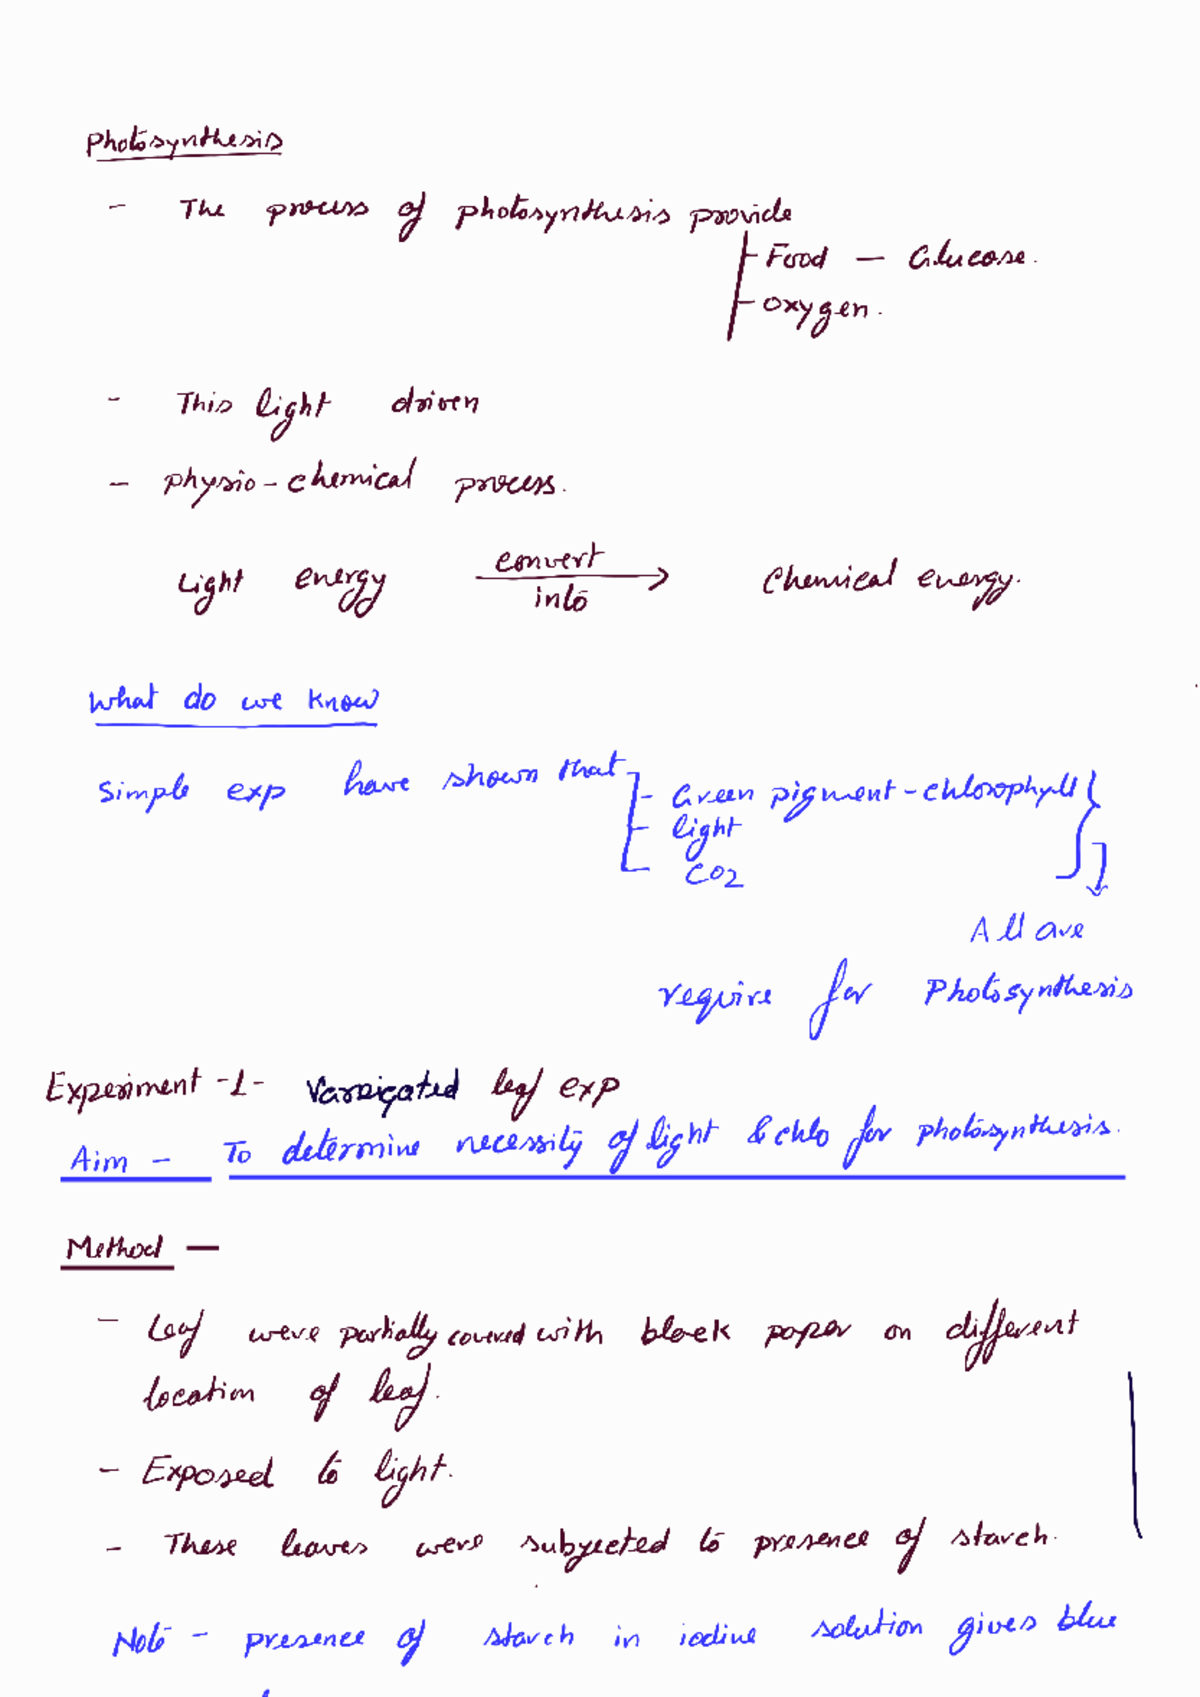 Photosynthesis
- The process of photosynthesis provide
- Food - Glucose.
- Oxygen.
- This light driven
- physio-chemical process.
Light energy convert into → Chemical energy.
What do we know
Simple exp have shown that
- Green pigment - chlorophyll
- light
CO2
All are
require for Photosynthesis
Experiment -1- Varrigated leaf exp
Aim - To determine necessity of light & chlo for photosynthesis.
Method -
- Leaf were partially covered with black paper on different
location of leaf.
- Exposed to light.
- These leaves were subjected to presence of starch.
Note - presence of starch in iodine solution gives blue